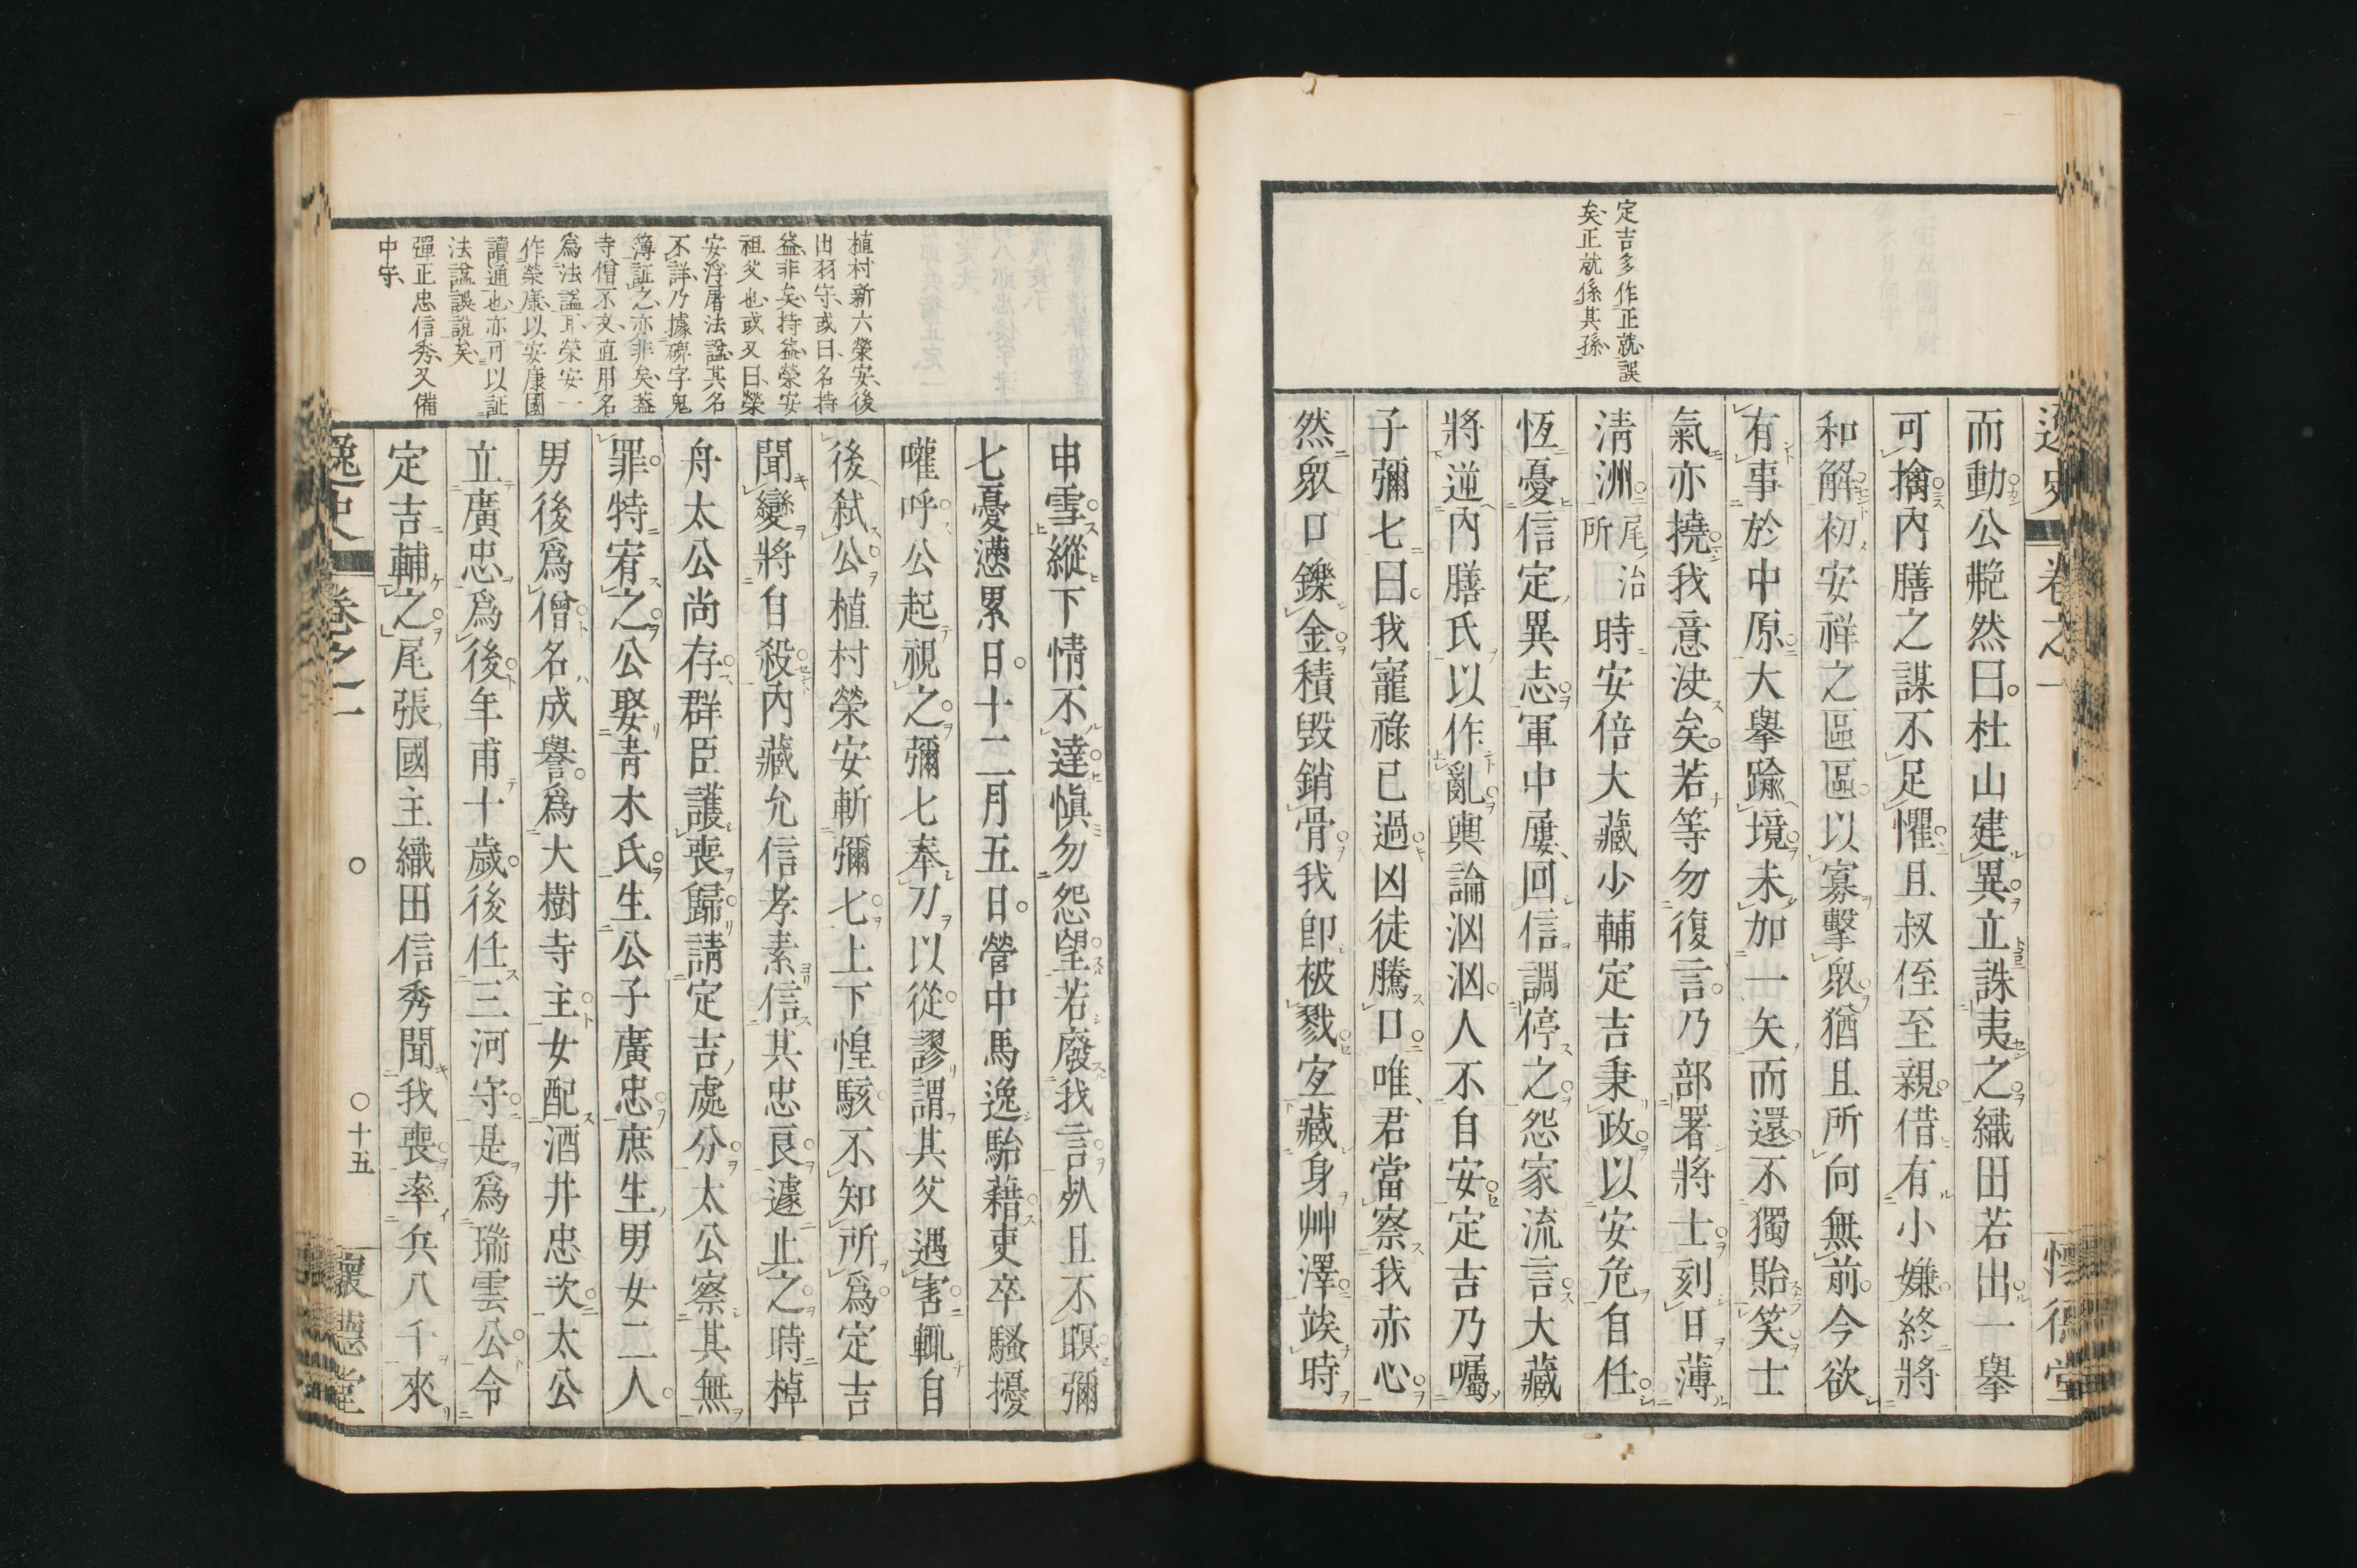 逸史
卷之一
懷德堂
定吉多作正就誤
矣正就係其孫
而動公艴然曰杜山建異立誅夷之織田若出一擧
可擒內膳之謀不足懼且叔侄至親借有小嫌終將
和解初安祥之區區以寡擊衆猶且所向無前今欲
有事於中原大擧踰境未加一矢而還不獨貽笑士
氣亦撓我意決矣若等勿復言乃部署將士刻日薄
淸洲尾治所時安倍大藏少輔定吉秉政以安危自任
恆憂信定異志軍中屢回信調停之怨家流言大藏
將逆內膳氏以作亂輿論洶洶人不自安定吉乃囑
子彌七曰我寵祿已過凶徒騰口唯君當察我赤心
然衆口鑠金積毀銷骨我卽被戮宜藏身艸澤竢時
植村新六榮安後
出羽守或曰名持
益非矣持益榮安
祖父也或又曰榮
安浮屠法諡其名
不詳乃據碑字鬼
簿証之亦非矣蓋
寺僧不文直用名
爲法諡耳榮安一
作榮康以安康國
讀通也亦可以証
法諡誤說矣
彈正忠信秀又備
中守
申雪縱下情不達愼勿怨望若廢我言氿且不瞑彌
七憂懣累日十二月五日營中馬逸駘藉吏卒騷擾
嚾呼公起視之彌七奉刀以從謬謂其父遇害輒自
後弑公植村榮安斬彌七上下惶駭不知所爲定吉
聞變將自殺內藏允信孝素信其忠良遽止之時棹
舟太公尚存群臣護喪歸請定吉處分太公察其無
罪特宥之公娶靑木氏生公子廣忠庶生男女二人
男後爲僧名成譽爲大樹寺主女配酒井忠次太公
立廣忠爲後年甫十歲後任三河守是爲瑞雲公令
定吉輔之尾張國主織田信秀聞我喪率兵八千來
逸史
卷之一
十五
懷德堂